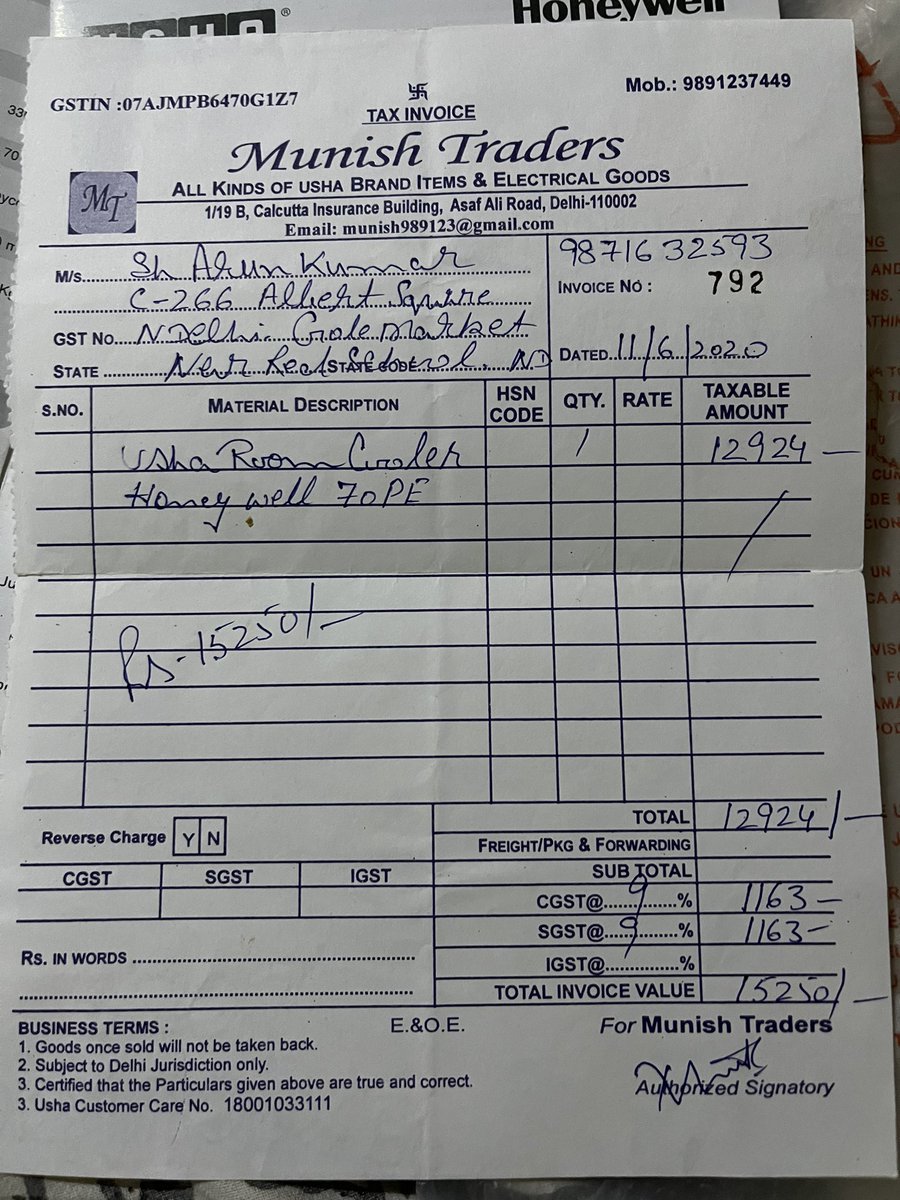 Honeywell
®
GSTIN :07AJMPB6470G1Z7
卐
Mob.: 9891237449
TAX INVOICE
Munish Traders
MT
ALL KINDS OF USHA BRAND ITEMS & ELECTRICAL GOODS
1/19 B, Calcutta Insurance Building, Asaf Ali Road, Delhi-110002
Email: munish989123@gmail.com
M/s. Sh Arun Kumar
9871632593
C-266 Albert Square
INVOICE NO : 792
GST No. N Delhi Gole Market
STATE STATE CODE ND
DATED 11/6/2020
S.NO. MATERIAL DESCRIPTION HSN CODE QTY. RATE TAXABLE AMOUNT
Usha Room Cooler 1 12924 —
Honey well 70PE
Rs-15250/-
TOTAL 12924/-
Reverse Charge Y N
FREIGHT/PKG & FORWARDING
CGST SGST IGST
SUB TOTAL
CGST@ 9 % 1163-
SGST@ 9 % 1163-
RS. IN WORDS
IGST@ %
TOTAL INVOICE VALUE 15250/-
BUSINESS TERMS : E.&O.E. For Munish Traders
1. Goods once sold will not be taken back.
2. Subject to Delhi Jurisdiction only.
3. Certified that the Particulars given above are true and correct.
3. Usha Customer Care No. 18001033111
Authorized Signatory